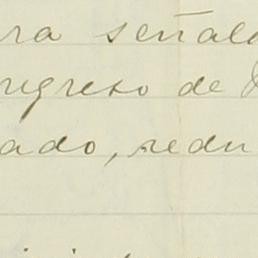 ra señala
ngreso de
ado, redu